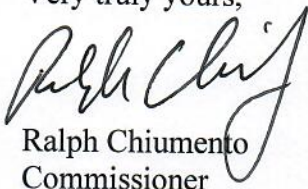 Very truly yours,
Ralph Chiumento
Commissioner